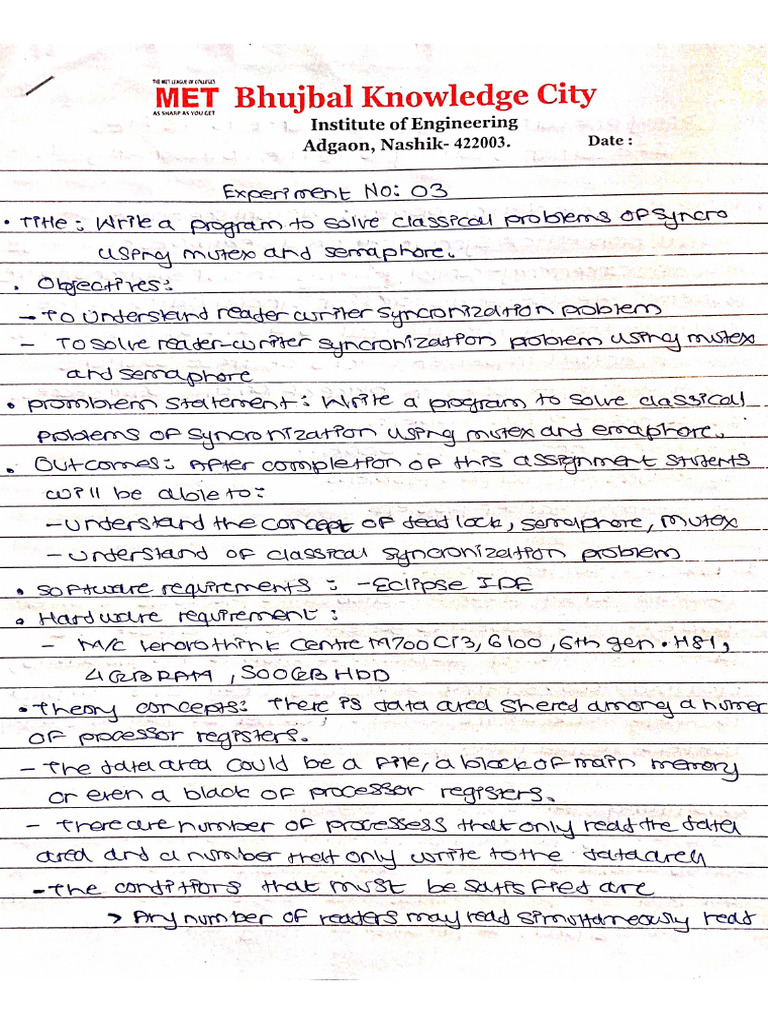 THE MET LEAGUE OF COLLEGES
MET Bhujbal Knowledge City
AS SHARP AS YOU GET
Institute of Engineering
Adgaon, Nashik- 422003. Date :
Experiment No: 03
• Title : Write a program to solve classical problems of syncro
using mutex and semaphore.
• Objectives:
- To understand reader writer syncronization problem
- To solve reader-writer syncronization problem using mutex
and semaphore
• Prombrem statement : Write a program to solve classical
problems of syncronization using mutex and emaphore.
• Outcomes: After completion of this assignment students
will be able to:
- understand the concept of dead lock, semaphore, mutex
- understand of classical syncronization problem
• Software requirements : - Eclipse IDE
• Hardware requirement :
- M/C lenovo think centre M700 Ci3, 6100, 6th gen. H81,
4GB RAM, 500GB HDD
• Theory concepts: There is data area shered among a numer
of processor registers.
- The data area could be a file, a block of main memory
or even a black of processor registers.
- There are number of processess that only read the data
area and a number that only write to the data area
- The conditions that must be satisfied are
> Any number of readers may read simultaneously read